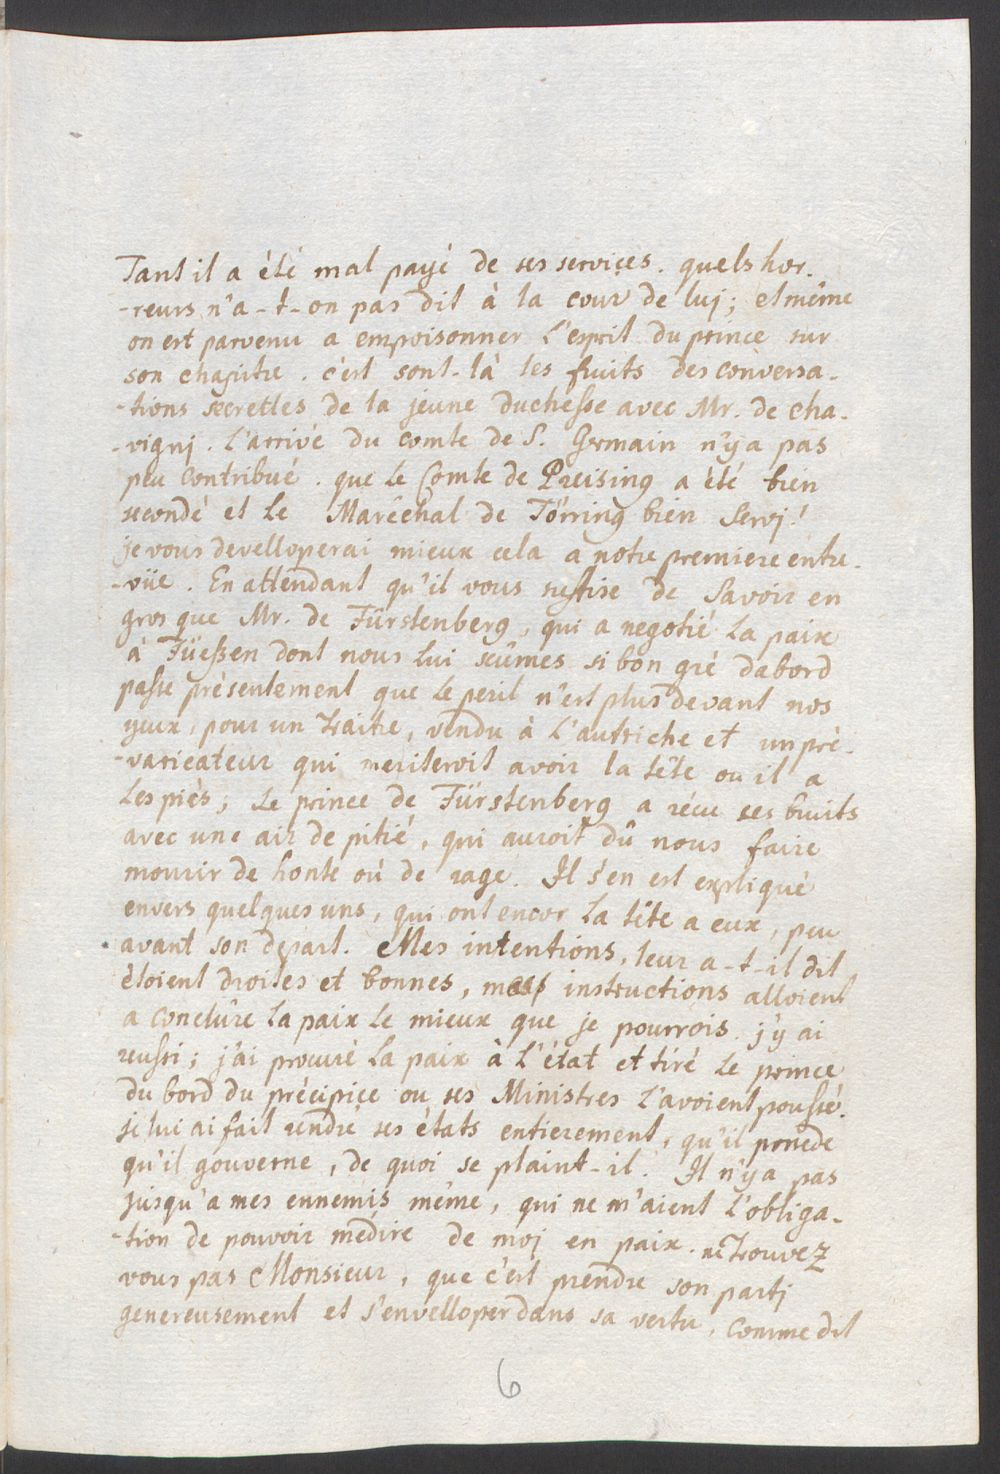 Tant il a été mal payé de ses services. quels hor-
-reurs n'a-t-on pas dit à la cour de luj; et même
on est parvenu a empoisonner l'esprit du prince sur
son chapitre. c'est sont-là les fruits des conversa-
-tions secrettes de la jeune duchesse avec Mr. de cha-
-vignj. L'arrivé du comte de S. Germain n'ya pas
peu contribué. que le Comte de Preising a été bien
secondé et le Maréchal de Törring bien servj!
je vous developerai mieux cela a notre premiere entre-
-vüe. En attendant qu'il vous suffise de savoir en
gros que Mr. de Fürstenberg, qui a negotié la paix
à Füeßen dont nous lui scûmes si bon gré dabord
passe présentement que le peril n'est plus devant nos
yeux, pour un traitre, vendu à l'autriche et un pré-
-varicateur qui meriteroit avoir la tête ou il a
les piès; Le prince de Fürstenberg a récu ses bruits
avec une air de pitié, qui auroit dû nous faire
mourir de honte où de rage. Il s'en est expliqué
envers quelques uns, qui ont encor la tête a eux, peu
avant son depart. Mes intentions, leur a-t-il dit,
étoient droites et bonnes, mes instructions alloient
a conclûre la paix le mieux que je pourrois. j'y ai
reussi; j'ai procuré la paix à l'état et tiré le prince
du bord du précipice ou ses Ministres l'avoient poussé.
je lui ai fait rendre ses états entierement, qu'il possede
qu'il gouverne, de quoi se plaint-il? Il n'ya pas
jusqu'a mes ennemis même, qui ne m'aient l'obliga-
-tion de pouvoir medire de moj en paix. ne trouvez
vous pas Monsieur, que c'est prendre son partj
genereusement et s'envelloper dans sa vertu, comme dit
6